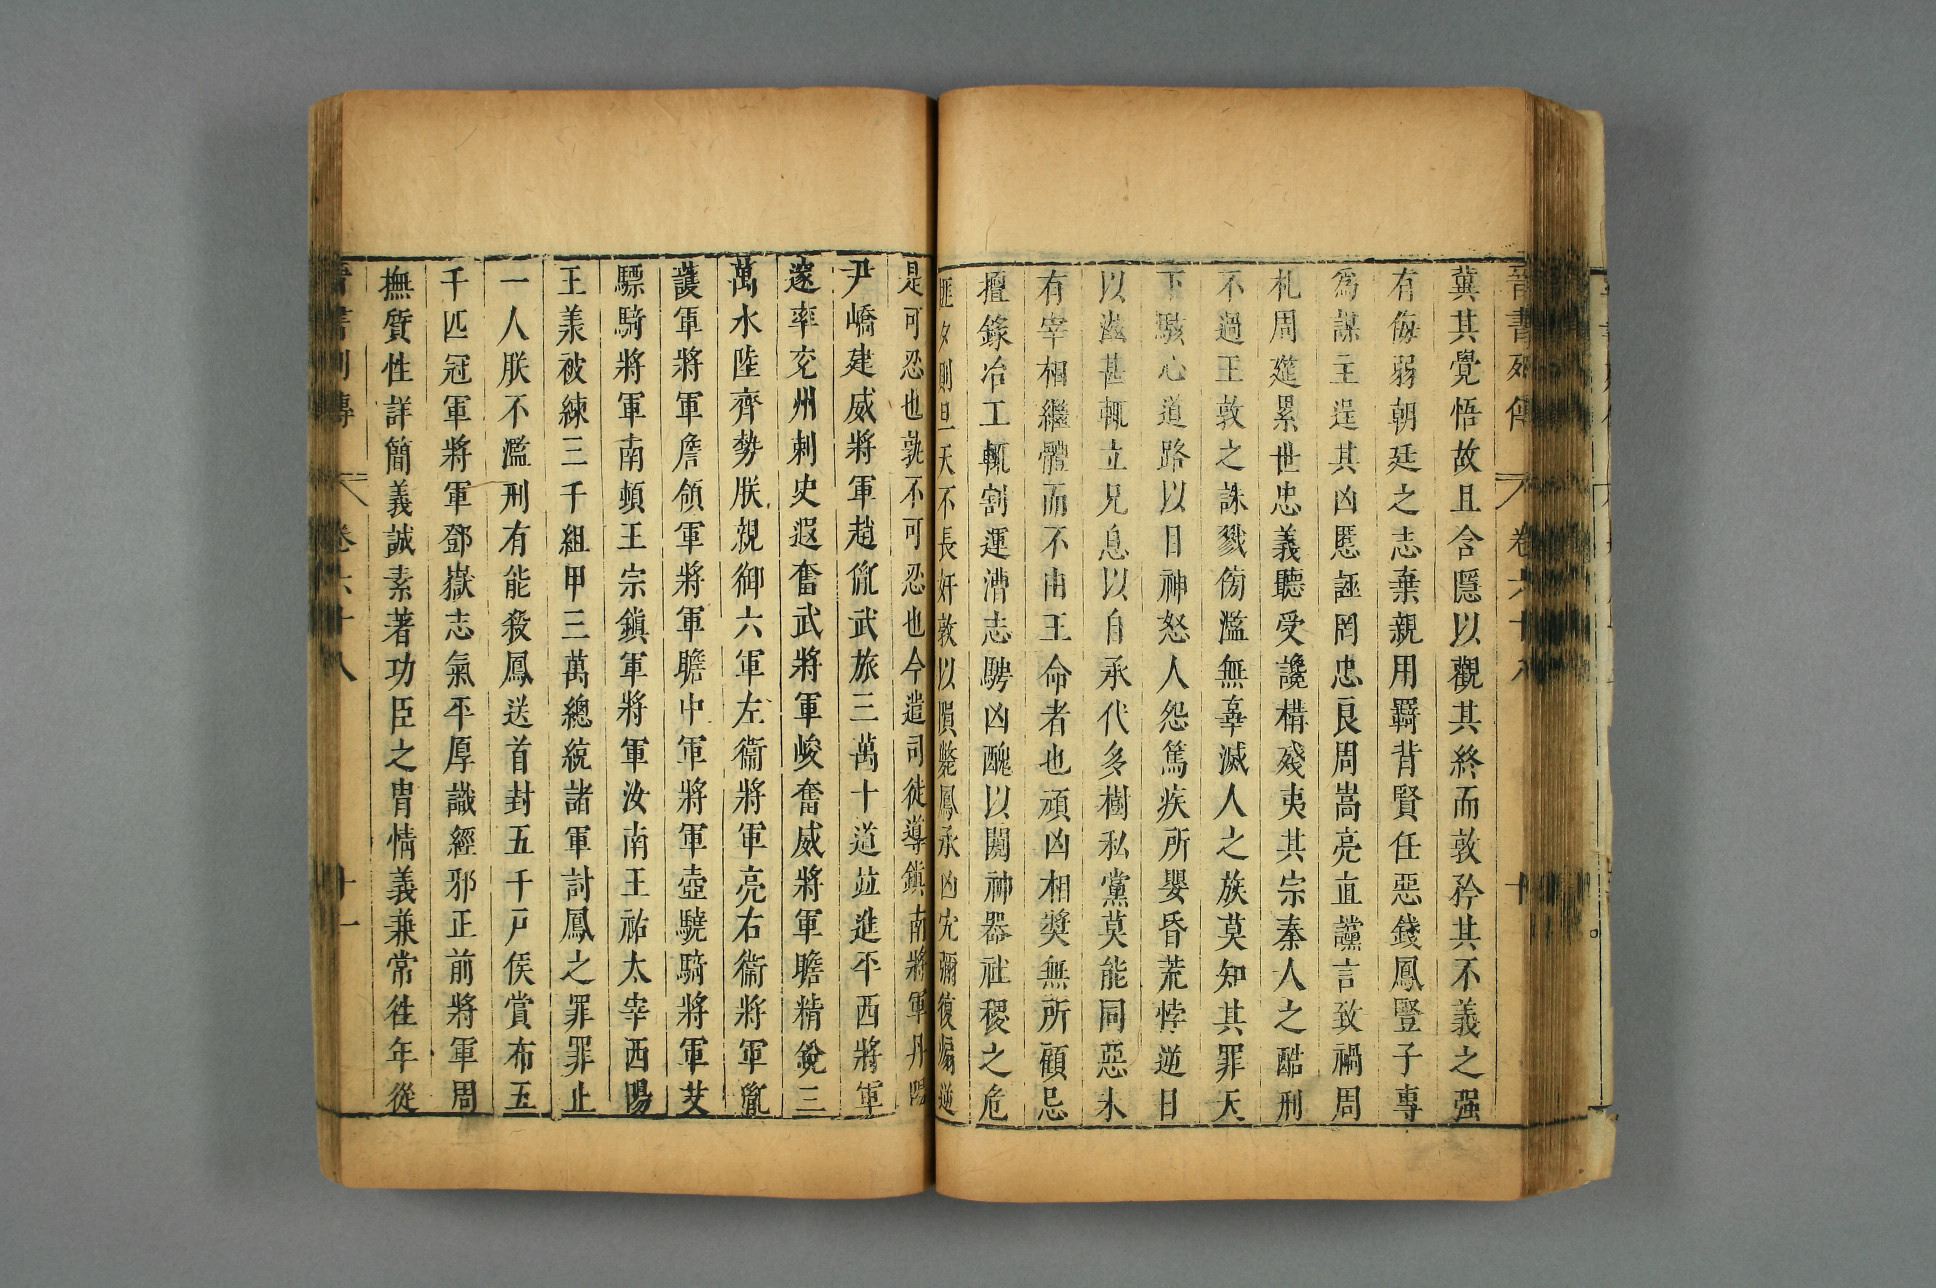 晉書列傳 卷六十八 十
冀其覺悟故且含隱以觀其終而敦矜其不義之强
有侮弱朝廷之志棄親用羈背賢任惡錢鳳豎子專
爲謀主逞其凶慝誣罔忠良周嵩亮直讜言致禍周
札周莚累世忠義聽受讒構殘夷其宗秦人之酷刑
不過王敦之誅戮傍濫無辜滅人之族莫知其罪天
下駭心道路以目神怒人怨篤疾所嬰昏荒悖逆日
以滋甚輒立兄息以自承代多樹私黨莫能同惡未
有宰相繼體而不由王命者也頑凶相奬無所顧忌
擅錄冶工輒割運漕志騁凶醜以闚神器社稷之危
匪夕則旦天不長奸敦以隕斃鳳承凶宄彌復煽逆
是可忍也孰不可忍也今遣司徒導鎮南將軍丹陽
尹嶠建威將軍趙胤武旅三萬十道並進平西將軍
邃率兗州刺史遐奮武將軍峻奮威將軍瞻精銳三
萬水陸齊勢朕親御六軍左衞將軍亮右衞將軍胤
護軍將軍詹領軍將軍瞻中軍將軍壺驍騎將軍艾
驃騎將軍南頓王宗鎮軍將軍汝南王祐太宰西陽
王羕被練三千組甲三萬總統諸軍討鳳之罪罪止
一人朕不濫刑有能殺鳳送首封五千戸侯賞布五
千匹冠軍將軍鄧嶽志氣平厚識經邪正前將軍周
撫質性詳簡義誠素著功臣之胄情義兼常往年從
晉書列傳 卷六十八 十一